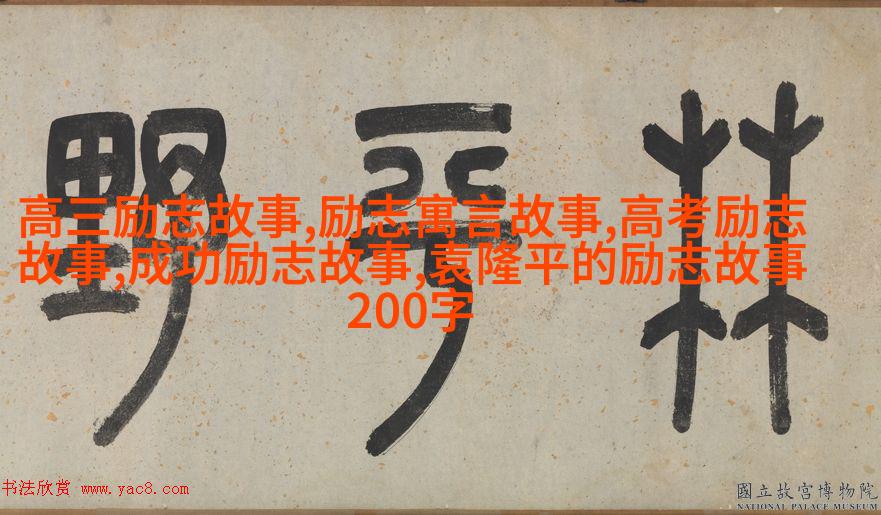 林平野
高三励志故事,励志寓言故事,高考励志
故事,成功励志故事,袁隆平的励志故事
200字
书法欣赏 www.yac8.com
國立故宮博物院
NATIONAL PALACE MUSEUM